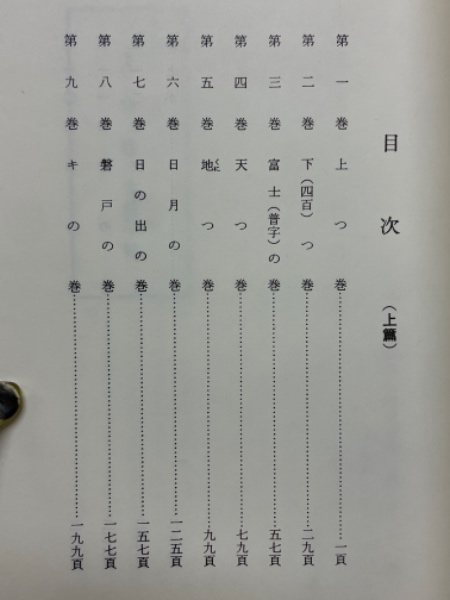 目次（上篇）
第一巻 上つ巻……一頁
第二巻 下（四百）つ巻……二九頁
第三巻 富士（普字）の巻……五七頁
第四巻 天つ巻……七九頁
第五巻 地つ巻……九九頁
第六巻 日月の巻……一二五頁
第七巻 日の出の巻……一五七頁
第八巻 磐戸の巻……一七七頁
第九巻 キの巻……一九九頁